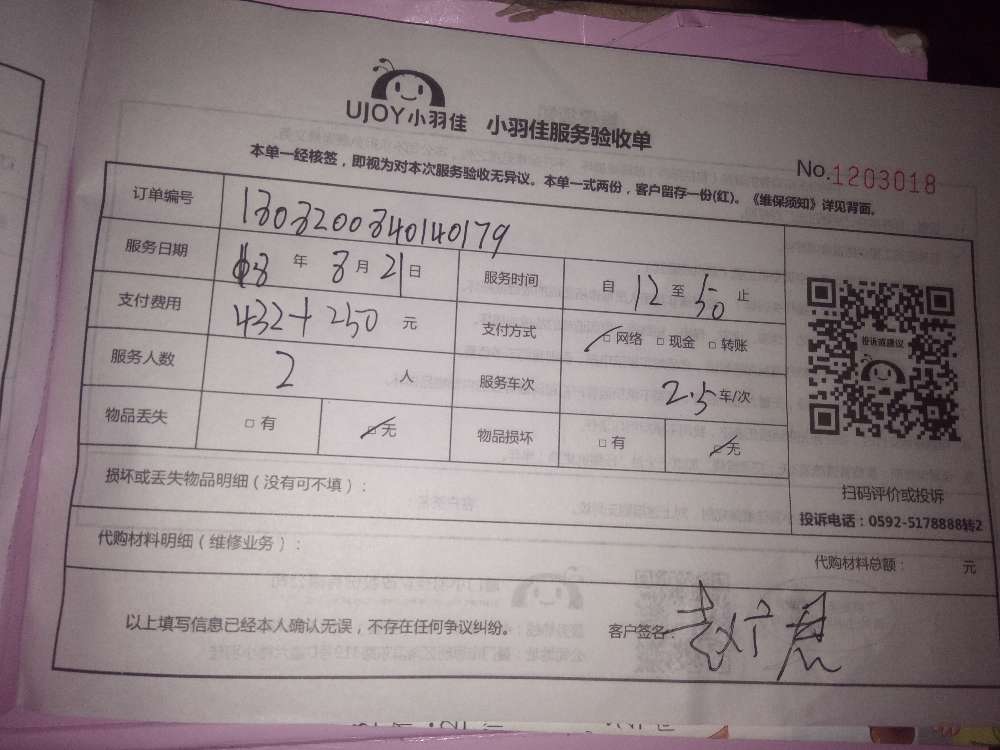 UJOY小羽佳 小羽佳服务验收单
No.1203018
本单一经核签，即视为对本次服务验收无异议。本单一式两份，客户留存一份(红)。《维保须知》详见背面。
订单编号 1303200340140179
服务日期 年 3月21日 服务时间 自12至50止
支付费用 432+250元 支付方式 □网络 □现金 □转账
服务人数 2人 服务车次 2.5车/次
物品丢失 □有 □无 物品损坏 □有 □无
投诉或建议
扫码评价或投诉
投诉电话：0592-5178888转2
损坏或丢失物品明细（没有可不填）：
代购材料明细（维修业务）： 代购材料总额： 元
以上填写信息已经本人确认无误，不存在任何争议纠纷。 客户签名：